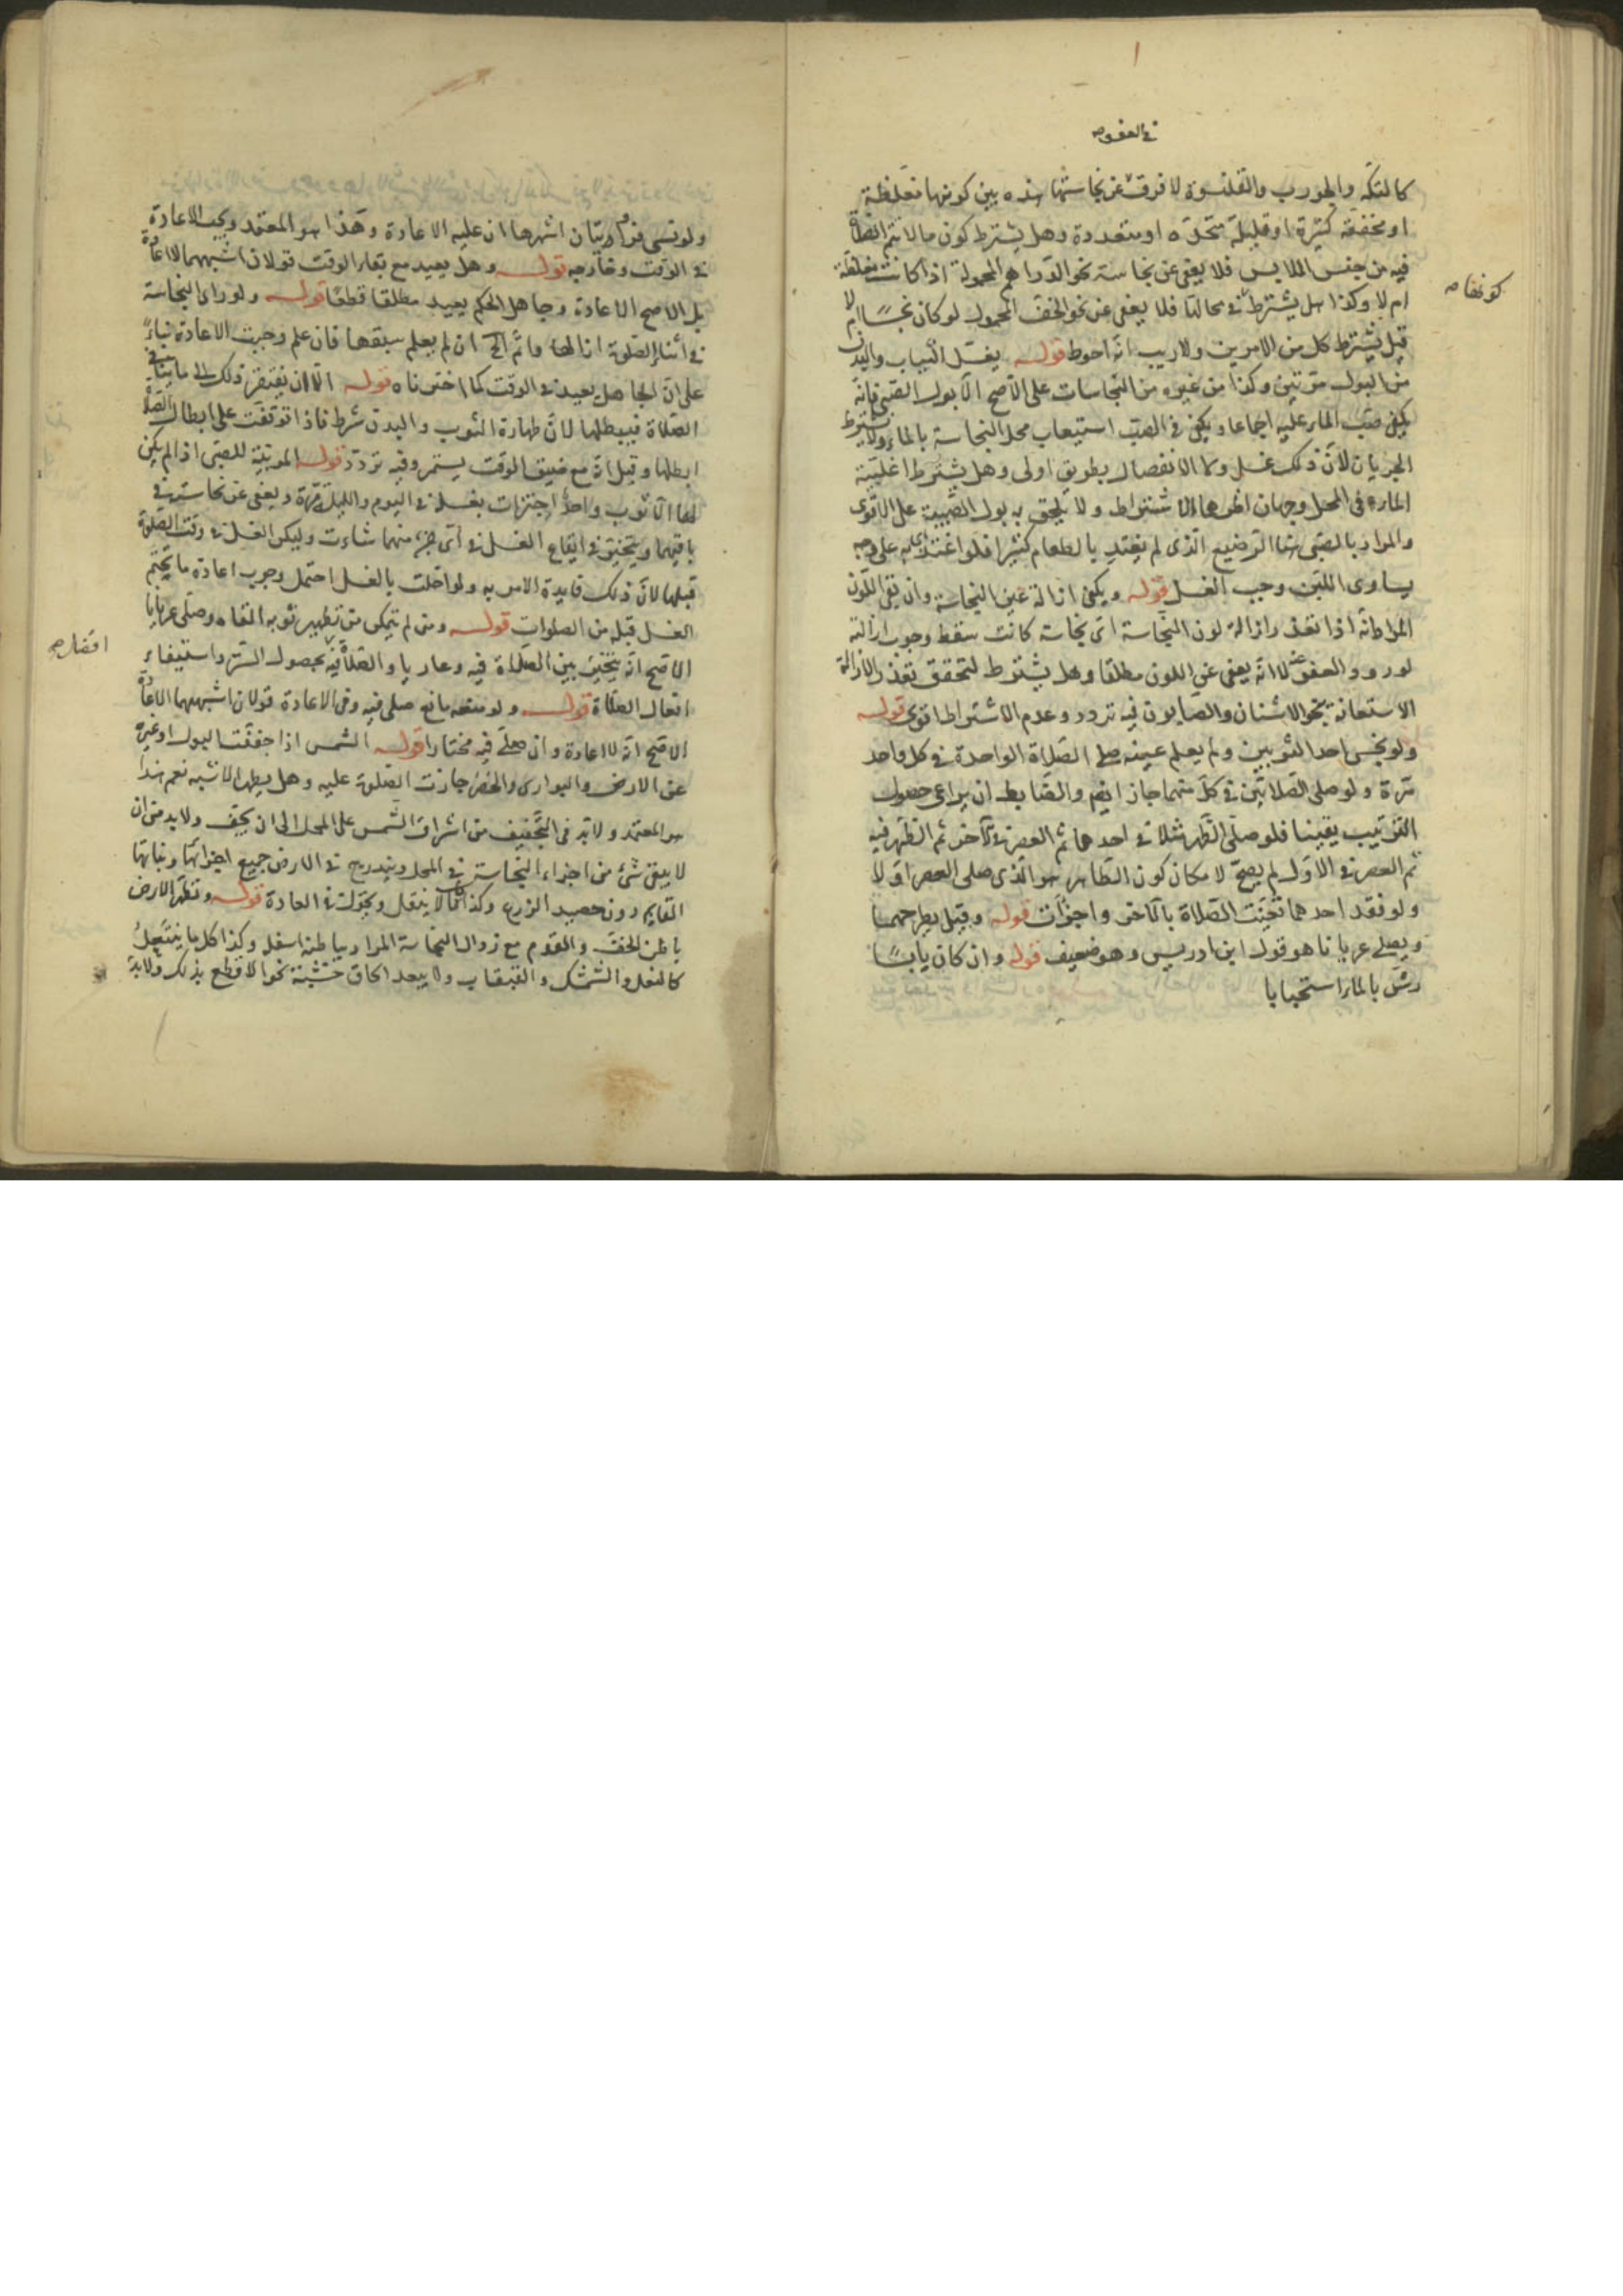 في العفو صه
كالتكة والجورب والقلنسوة لا فرق في نجاستها هذه بين كونها مغلظة
او مخففة كثيرة او قليلة متحدة او متعددة وهل يشترط كون ما لا تتم الصلاة
فيه من جنس الملابس فلا يعفى عن نجاسة نحو الدراهم المحمولة اذا كانت مغلظة
كونها صه
ام لا وكذا هل يشترط في محالها فلا يعفى عن نحو الخف المحمول لو كان نجسا ام لا
قيل يشترط كل من الامرين ولا ريب انه احوط قوله يغسل الثياب والبدن
من البول مرتين وكذا من غيره من النجاسات على الاصح الا بول الصبي فانه
يكفي صب الماء عليه اجماعا ويكفي في الصب استيعاب محل النجاسة بالماء ولا يشترط
الجريان لان ذلك غسل ولا الانفصال بطريق اولى وهل يشترط اغلبية
الماء في المحل وجهان اظهرهما الاشتراط ولا يلحق به بول الصبية على الاقوى
والمراد بالصبي هنا الرضيع الذي لم يغتد بالطعام كثيرا فلو اغتذى به على وجه
يساوي اللبن وجب الغسل قوله ويكفي ازالة عين النجاسة وان بقي اللون
المراد انه اذا تعذر ازالة لون النجاسة اي نجاسة كانت سقط وجوب ازالته
لورود العفو عنه لا انه يعفى عن اللون مطلقا وهل يشترط لتحقق تعذر الازالة
الاستعانة بنحو الاشنان والصابون فيه تردد وعدم الاشتراط اقوى قوله
ولو نجس احد الثوبين ولم يعلم عينه صلى الصلاة الواحدة في كل واحد
مرة ولو صلى الصلاتين في كل منهما جاز ايضا والضابط ان يراعى حصول
الترتيب يقينا فلو صلى الظهر مثلا في احدهما ثم العصر في الآخر ثم الظهر فيه
ثم العصر في الاول لم يصح لامكان كون الطاهر هو الذي صلى العصر اولا
ولو فقد احدهما تعينت الصلاة بالآخر واجزأت قوله وقيل يطرحهما
ويصلي عريانا هو قول ابن ادريس وهو ضعيف قوله وان كان يابسا
رش بالماء استحبابا
ولو نسي فروايتان اشهرهما ان عليه الاعادة وهذا هو المعتمد ويجب الاعادة
في الوقت وخارجه قوله وهل يعيد مع بقاء الوقت قولان اشبههما لا اعادة
بل الاصح الاعادة وجاهل الحكم يعيد مطلقا قطعا قوله ولو راى النجاسة
في اثناء الصلوة ازالها واتم الخ ان لم يعلم سبقها فان علم وجبت الاعادة بناء
على ان الجاهل يعيد في الوقت كما اخترناه قوله الا ان يفتقر ذلك الى ما ينافي
الصلاة فيبطلها لان طهارة الثوب والبدن شرط فاذا توقفت على ابطال الصلاة
ابطلها وقيل ان مع ضيق الوقت يستمر وفيه تردد قوله المربية للصبي اذا لم يكن
لها الا ثوب واحد اجتزات بغسله في اليوم والليلة مرة ويعفى عن نجاسته في
باقيهما ويتخير في ايقاع الغسل في اي جزء منهما شاءت وليكن الغسل في وقت الصلوة
قبلها لان ذلك فايدة الامر به ولو اخلت بالغسل احتمل وجوب اعادة ما يتحتم
الغسل قبله من الصلوات قوله ومن لم يتمكن من تطهير ثوبه القاه وصلى عريانا
الاصح انه يتخير بين الصلاة فيه وعاريا والصلاة فيه بحصول الستر واستيفاء
افعال الصلاة قوله ولو منعه مانع صلى فيه وفي الاعادة قولان اشبههما لا اعادة
الاصح انه لا اعادة وان صلى فيه مختارا قوله الشمس اذا جففت البول او غيره
عن الارض والبواري والحصر جازت الصلوة عليه وهل يطهر الاشبه نعم هذا
هو المعتمد ولا بد في التجفيف من اشراق الشمس على المحل الى ان يجف ولا بد من ان
لا يبقى شيء من اجزاء النجاسة في المحل ويندرج في الارض جميع اجزائها ونباتها
القايم دون حصيد الزرع وكذا ما لا ينقل ويحول في العادة قوله وتطهر الارض
باطن الخف والقدم مع زوال النجاسة المراد بباطنه اسفله وكذا كل ما ينتعل
كالنعل والشمشك والقبقاب ولا يبعد الحاق خشبة نحو الاقطع بذلك ولا بد